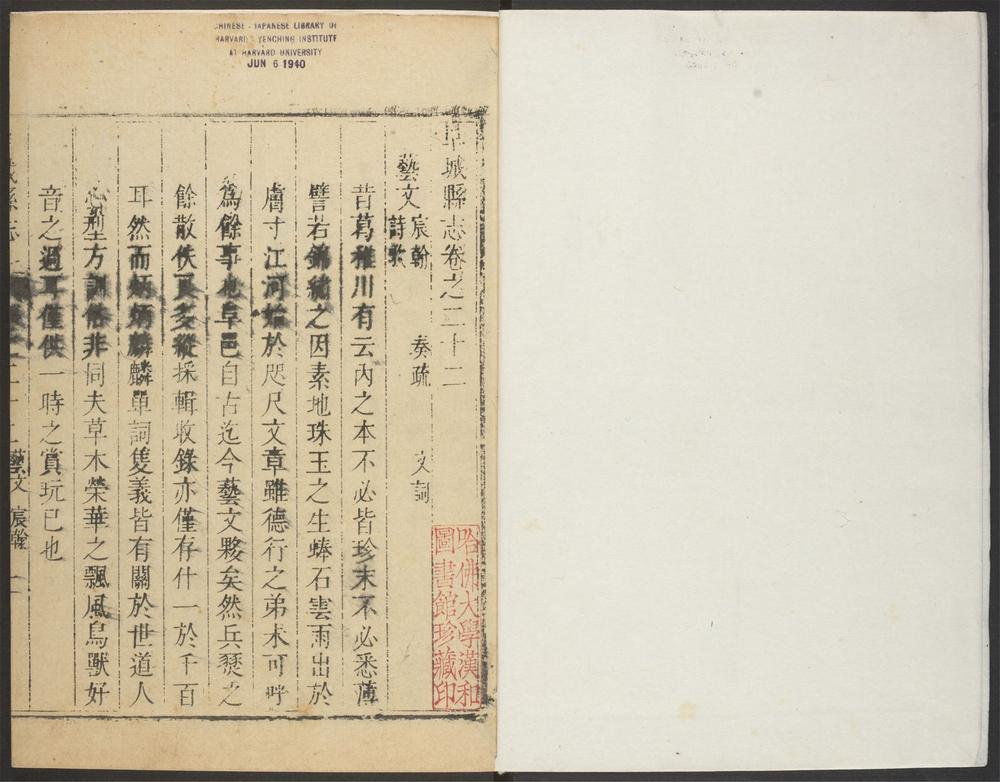 CHINESE - JAPANESE LIBRARY OF
HARVARD - YENCHING INSTITUTE
AT HARVARD UNIVERSITY
JUN 6 1940
阜城縣志卷之二十二
藝文 宸翰 奏疏 文詞
詩歌
昔葛稚川有云內之本不必皆珍末不必悉薄
譬若錦繡之因素地珠玉之生蜯石雲雨出於
膚寸江河始於咫尺文章雖德行之弟未可呼
為餘事也阜邑自古迄今藝文夥矣然兵燹之
餘散佚頁多縱採輯收錄亦僅存什一於千百
耳然而炳炳麟麟單詞隻義皆有關於世道人
心型方訓俗非同夫草木榮華之飄風鳥獸好
音之過耳僅供一時之賞玩已也
城縣志 卷之二十二 藝文 宸翰 一
哈佛大學漢和
圖書館珍藏印